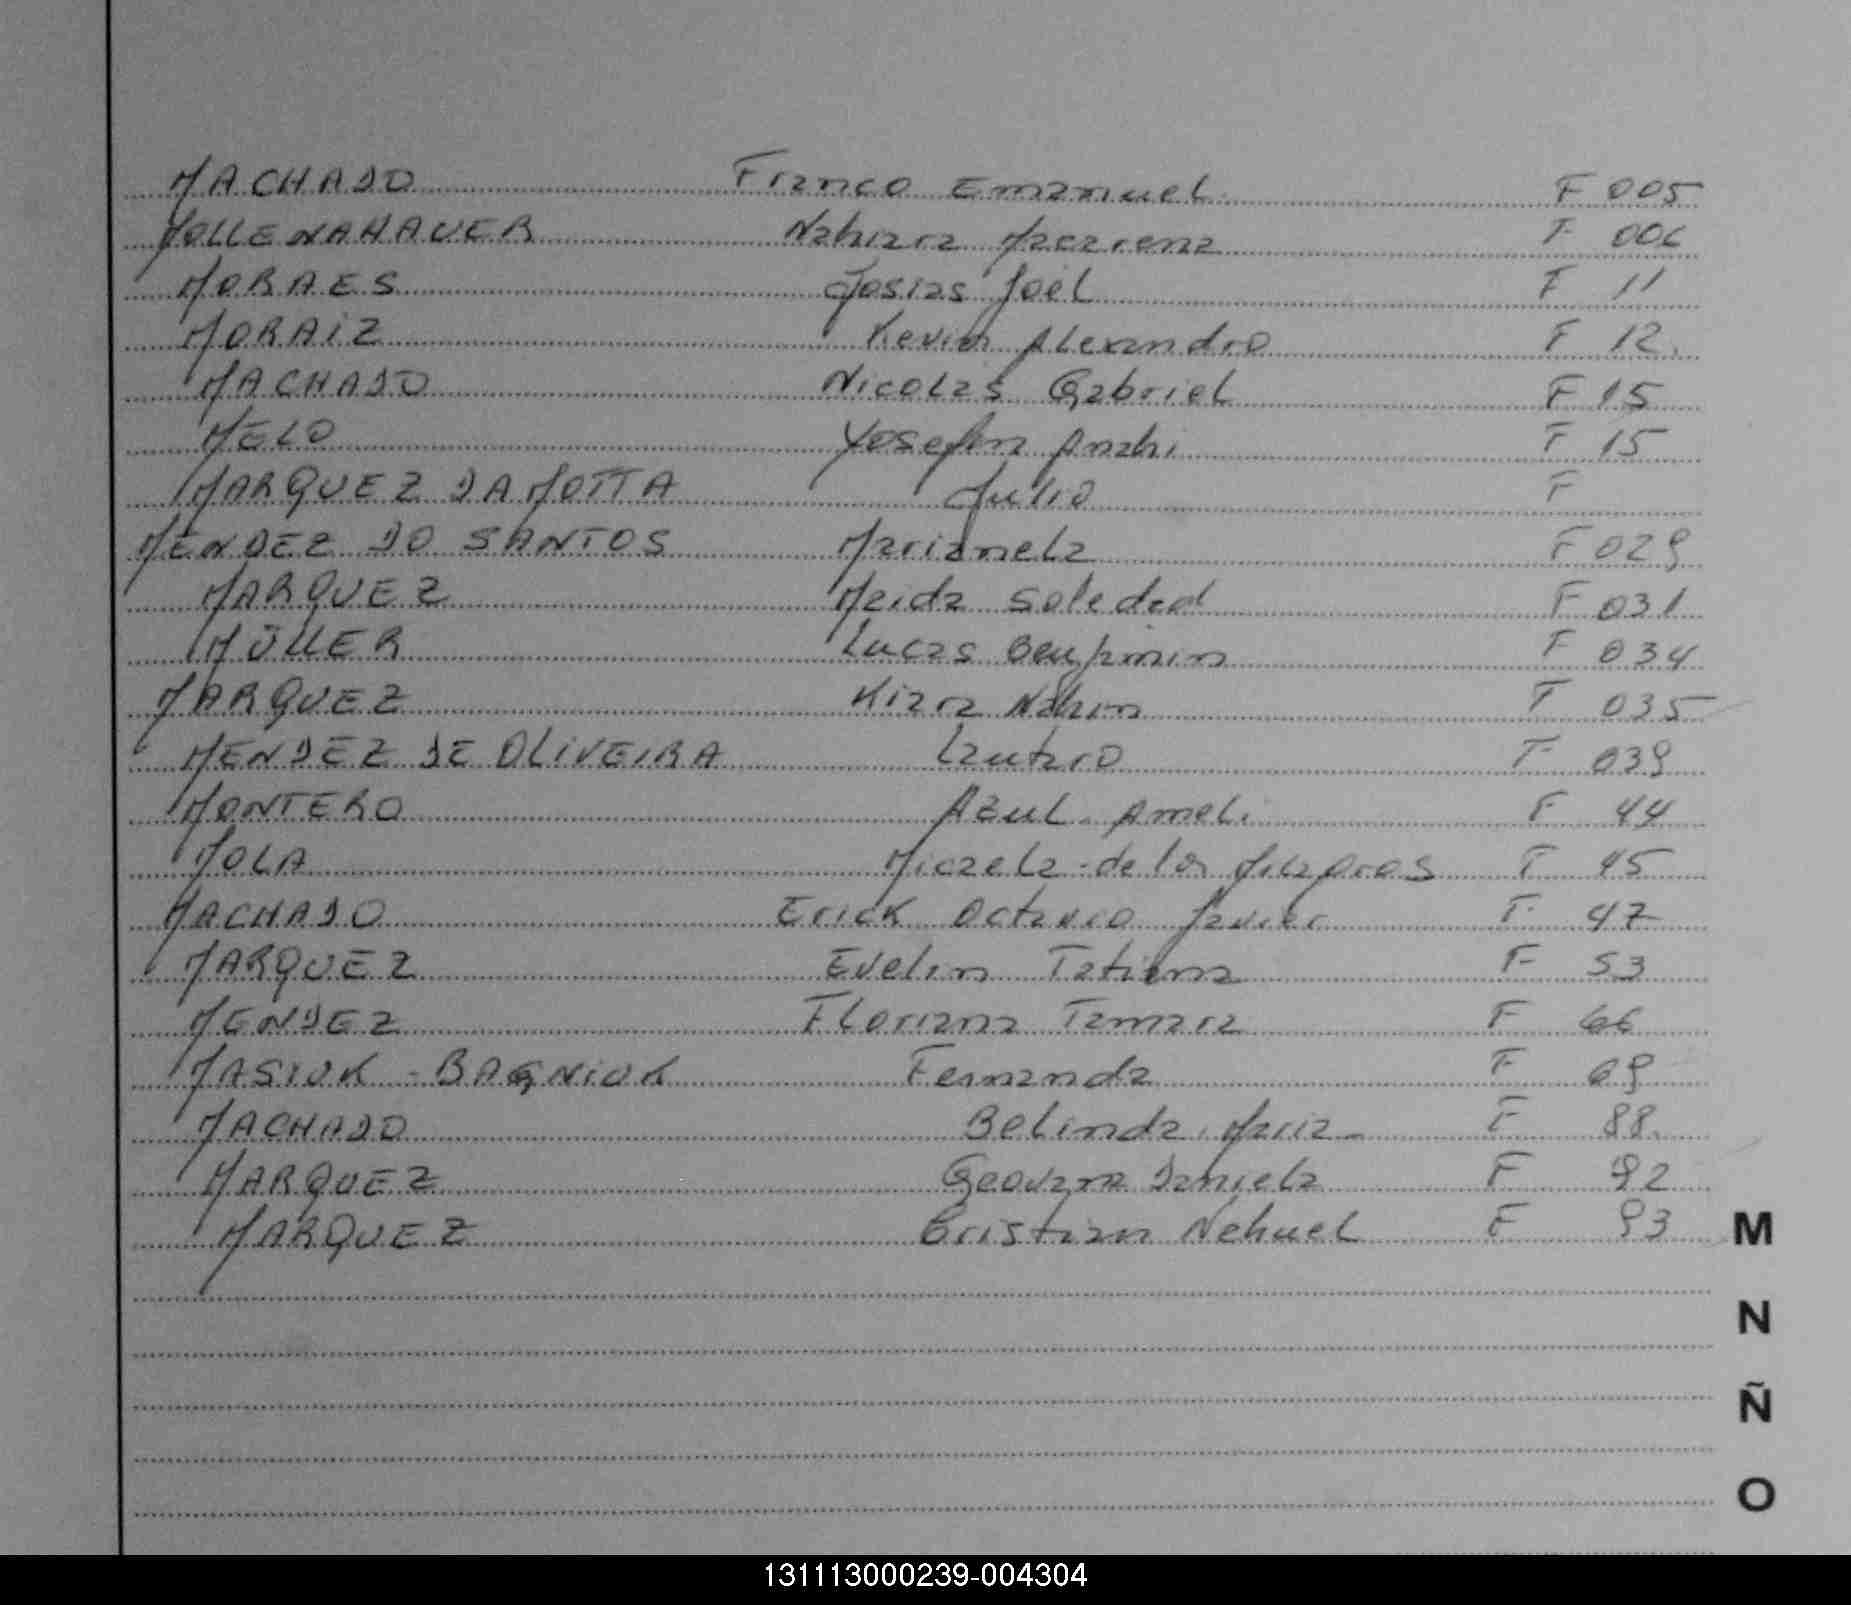 MACHADO Franco Emanuel F 005
MOLLENAHAUER Nahiara Macarena F 006
MORAES Josias Joel F 11
MORAIZ Kevin Alexandro F 12.
MACHADO Nicolás Gabriel F 15
MELO Yosefina Anahi F 15
MARQUEZ DA MOTTA Julio F
MENDEZ DO SANTOS Marianela F 029
MARQUEZ Neida Soledad F 031
MÜLLER Lucas Benjamin F 034
MARQUEZ Kiara Nahin F 035
MENDEZ DE OLIVEIRA Lautaro F 039
MONTERO Azul Ameli F 44
MOLA Micaela de los Milagros F 45
MACHADO Erick Octavio Javier F 47
MARQUEZ Evelin Tatiana F 53
MENDEZ Floriana Tamara F 66
MASIUK - BAGNIUK Fernanda F 69
MACHADO Belinda Maria F 88.
MARQUEZ Geovana Daniela F 92
MARQUEZ Cristian Nehuel F 93
M
N
Ñ
O
131113000239-004304